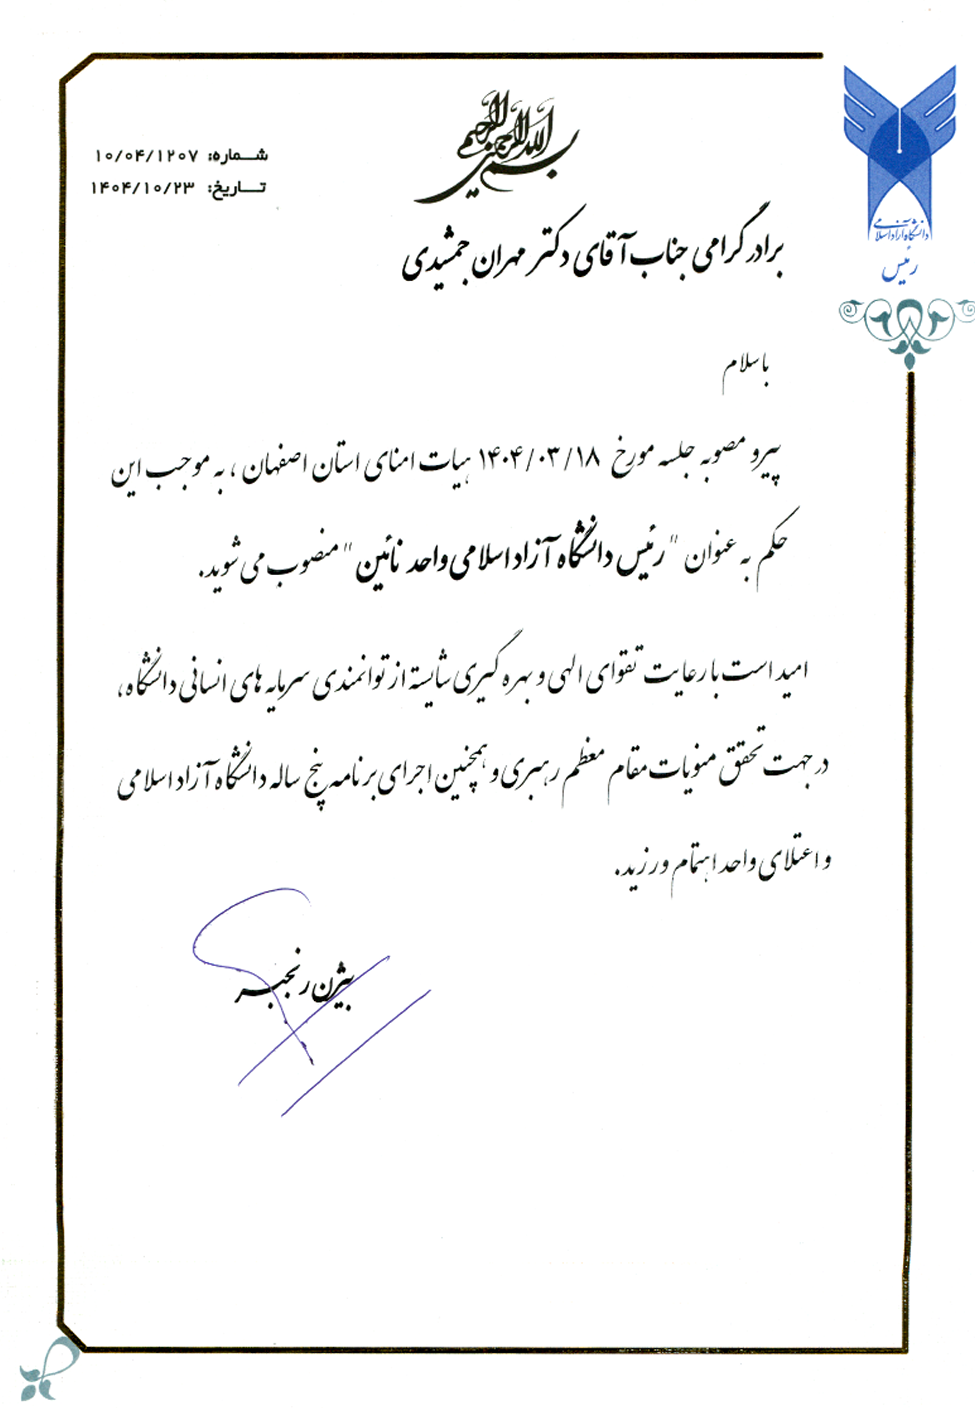 بسم الله الرحمن الرحیم
شماره: ۱۰/۰۴/۱۲۰۷
تاریخ: ۱۴۰۴/۱۰/۲۳
دانشگاه آزاد اسلامی
رئیس
برادر گرامی جناب آقای دکتر مهران جمشیدی
با سلام
پیرو مصوبه جلسه مورخ ۱۴۰۴/۰۳/۱۸ هیات امنای استان اصفهان ، به موجب این
حکم به عنوان "رئیس دانشگاه آزاد اسلامی واحد نائین" منصوب می شوید.
امید است با رعایت تقوای الهی و بهره گیری شایسته از توانمندی سرمایه های انسانی دانشگاه،
در جهت تحقق منویات مقام معظم رهبری و همچنین اجرای برنامه پنج ساله دانشگاه آزاد اسلامی
و اعتلای واحد اهتمام ورزید.
بیژن رنجبر